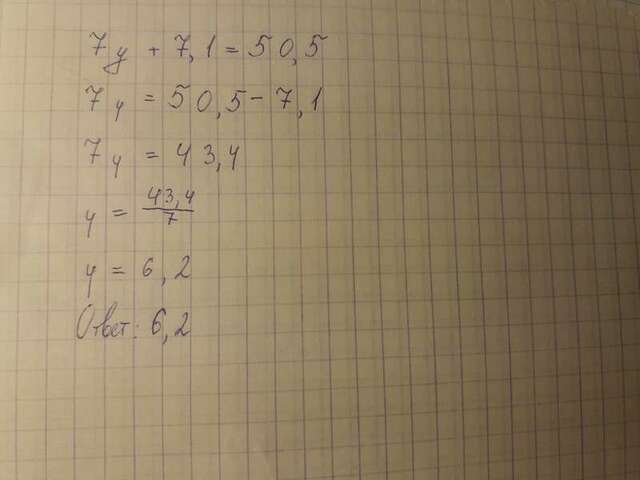 7y + 7,1 = 50,5
7y = 50,5 - 7,1
7y = 43,4
y = 43,4/7
y = 6,2
Ответ: 6,2